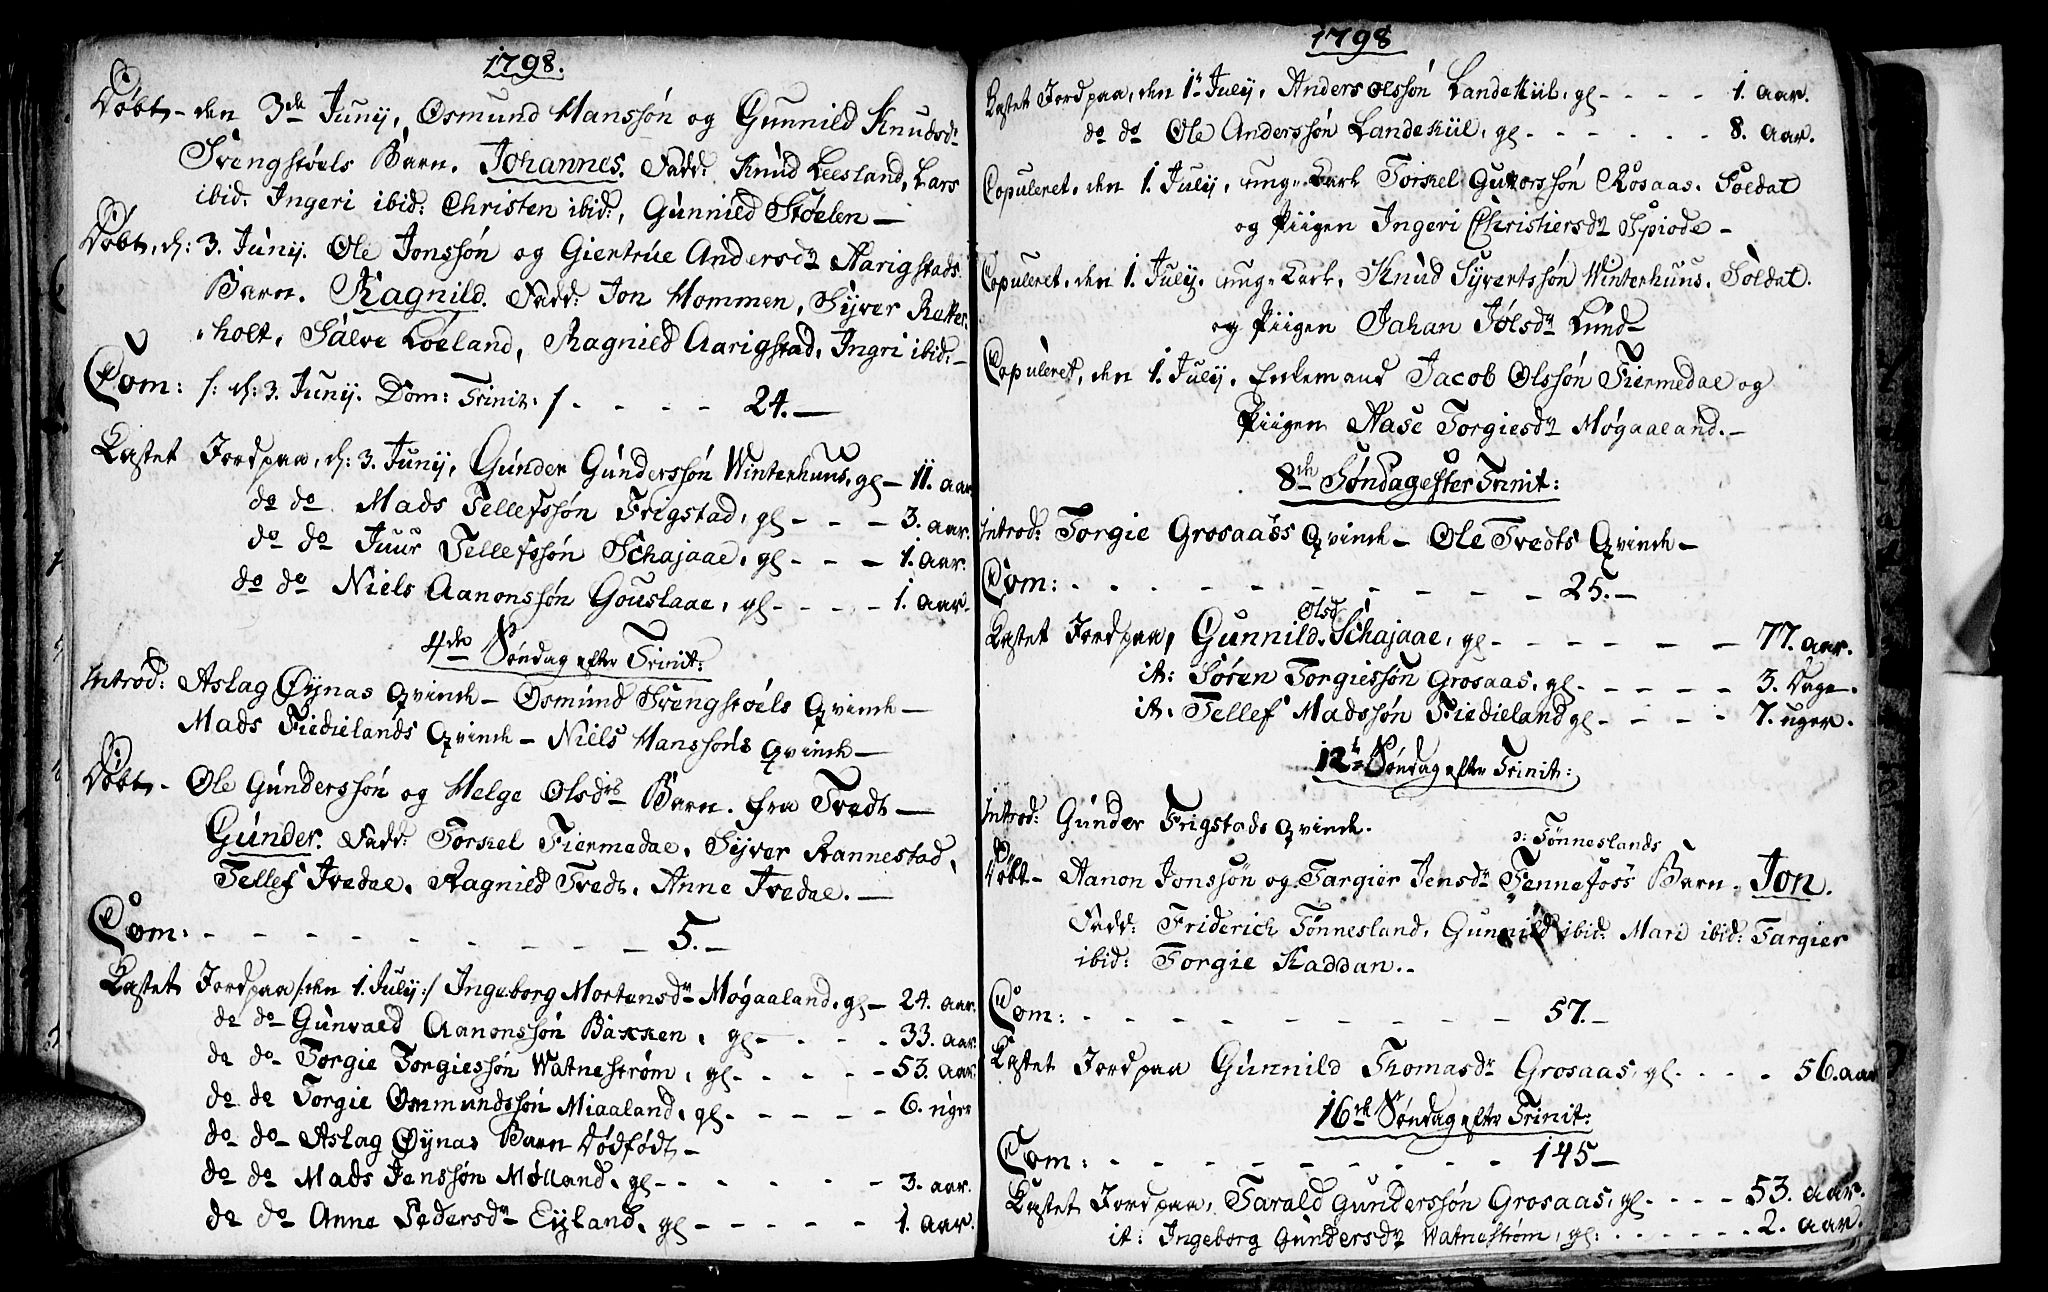 1798.
Døbt – den 3de Junij, Osmund Hanssøn og Gunnild Knudsdr
Svengstøels Barn. Johannes. Fadd: Knud Leeland, Lars
ibid: Ingeri ibid: Christen ibid:, Gunnild Støelen –
Døbt, d: 3. Junij. Ole Jonssøn og Giertrue Andersdr Aarigstads
Barn. Ragnild. Fadd: Jon Hommen, Syver Retter
holt, Salve Løeland, Ragnild Aarigstad, Ingri ibid: –
Com: /: d: 3. Junij. Dom: Trinit: / - - - - 24. –
Kastet Jord paa, d: 3. Junij, Gunder Gunderssøn Winterhuus, gl – 11. aar
do do Mads Tellefssøn Frigstad, gl - - - 3. aar.
do do Juur Tellefssøn Schajaae, gl - - - 1. aar.
do do Niels Aanonssøn Gouslaae, gl - - - - 1. aar.
4de Søndag efter Trinit:
Introd: Aslag Øynas Qvinde – Osmund Svengstøels Qvinde –
Mads Fiedielands Qvinde – Niels Hanssøns Qvinde –
Døbt – Ole Gunderssøn og Helge Olsdrs Barn. fra Tvedt –
Gunder. Fadd: Torkel Fiermedae, Syver Rannestad,
Tellef Ivedae, Ragnild Tvedt, Anne Ivedae. –
Com: - - - - - - - - - 5. –
Kastet Jord paa /: den 1. July :/ Ingeborg Mortensdr Møgaaland, gl – 24. aar.
do do Gunvald Aanonssøn Bakken, gl - - - - 33. aar.
do do Torgie Torgiessøn Watnestrøm, gl - - - - - 53. aar.
do do Torgie Ommundssøn Miaaland, gl - - - - - 6. uger
do do Aslag Øynas Barn Dødfødt –
do do Mads Jenssøn Mølland, gl - - - - - - 3. aar.
do do Anne Pedersdr Eyland, gl - - - - - 1. aar.
1798
Kastet Jord paa, den 1te July, Anders Olssøn Landekiil, gl - - - - 1. aar.
do do Ole Anderssøn Landekiil, gl - - - - - - 8. aar.
Copuleret, den 1. July, unge Karl Torkel Guttorssøn Rosaas. Soldat
og Piigen Ingeri Christiersdr Spiode –
Copuleret, den 1. July, unge Karl, Knud Syvertssøn Winterhuus. Soldat.
og Piigen Johan Jølsdr Lund –
Copuleret, den 1. July, Enkemand Jacob Olssøn Fiermedae og
Piigen Aase Torgiesdr Møgaaland. –
8de Søndag efter Trinit:
Introd: Torgie Grosaass Qvinde – Ole Tvedts Qvinde –
Com: - - - - - - - - - - 25. –
Olsd
Kastet Jord paa, Gunnild Schajaae, gl - - - - - - 77. aar.
it: Søren Torgiessøn Grosaas, gl - - - - - 3. Dage.
it: Tellef Madssøn Fiedieland gl - - - - 7. uger.
12te Søndag efter Trinit:
Introd: Gunder Frigstads Qvinde.
ↄ: Tønneslands
Døbt – Aanon Jonssøn og Targier Jensdr Tennefoss Barn. Jon.
Fadd: Friderich Tønnesland, Gunnild ibid: Mari ibid: Targier
ibid: Torgie Kaddan. –
Com: - - - - - - - - - - 57. –
Kastet Jord paa Gunnild Thomasdr Grosaas, gl - - - - 56. aar
16de Søndag efter Trinit:
Com: - - - - - - - - - 145 –
Kastet Jord paa, Tarald Gunderssøn Grosaas, gl - - - - 53. aar.
it: Ingeborg Gundersdr Watnestrøm, gl: - - - - - - 2. aar.